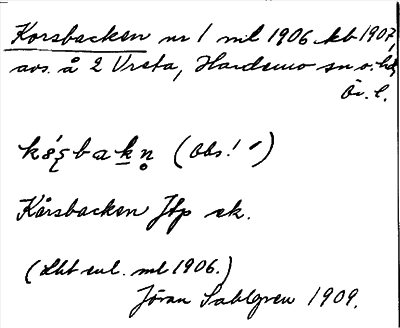 Korsbacken nr 1 ml 1906 kb 1907,
avs. å 2 Vreta, Hardemo sn o. hd
Ör. l.
(Obs! ´)
Kårsbacken Jfp ek.
(Lht enl. ml 1906.)
Jöran Sahlgren 1909.